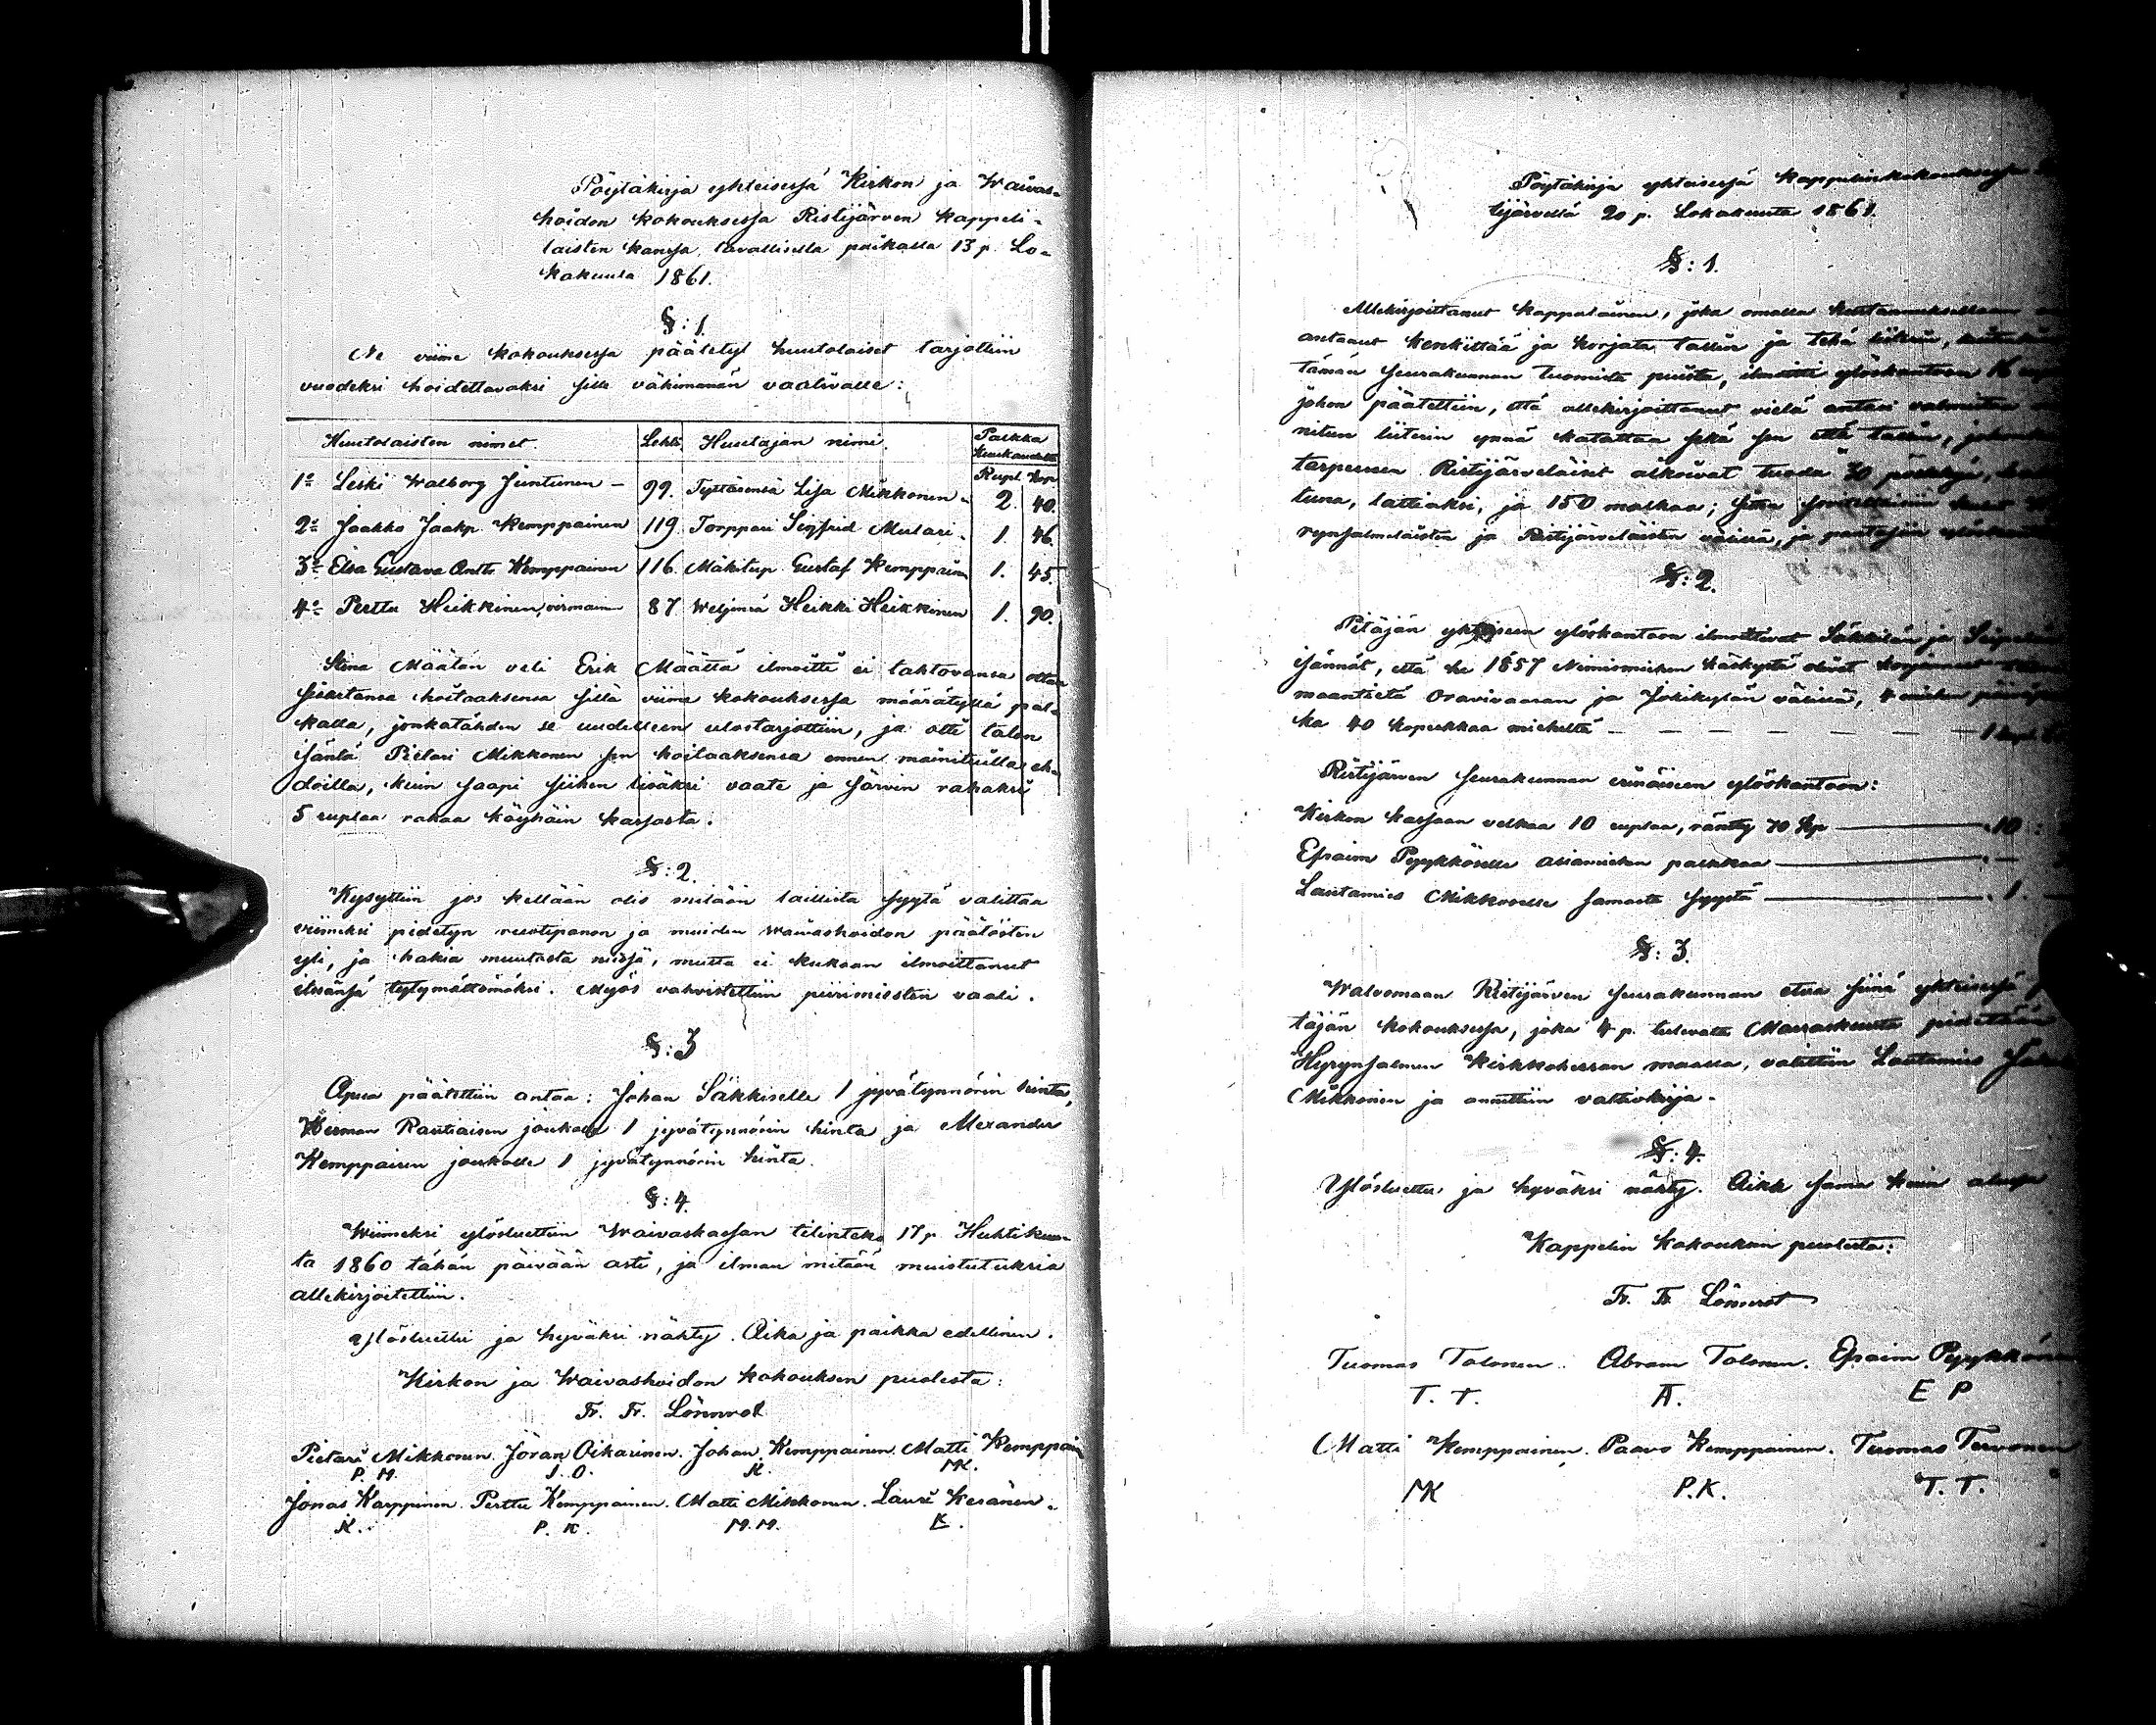 Pöytäkirja yhteisessä Kirkon ja Waivas-
hoidon kokouksessa Ristijärven kappeli-
laisten kanssa tavallisella paikalla 13 p. Lo-
kakuuta 1861.
§: 1.
Ne viime kokouksessa päätetyt huutolaiset tarjottiin
vuodeksi hoidettavaksi sille vähimmän vaativalle:
Huutolaisten nimet. Lehti. Huutajan nimi. Palkka
Kuukaudelta
Rupl. Kop
1:o Leski Walborg Juntunen – 99. Tyttärensä Lisa Mikkonen – 2. 40.
2:o Jaakko Jaakp. Kemppainen 119. Torppari Sigfrid Mulari. 1. 46.
3:o Elsa Gustava Antt: Kemppainen 116. Mäkitup. Gustaf Kemppainen 1. 45.
4:o Perttu Heikkinen, 87. Weljensä Heikki Heikkinen 1. 90.
Stina Määtän veli Erik Määttä ilmoitti ei tahtovansa ottaa
sisartansa hoitaaksensa sillä viime kokouksessa määrätyllä pal-
kalla, jonkatähden se uudelleen ulostarjottiin, ja otti talon
isäntä Pietari Mikkonen sen hoitaaksensa ennen mainituilla eh-
doilla, kuin saapi siihen lisäksi vaate ja särvin rahaksi
5 ruplaa rahaa köyhäin kassasta.
§: 2.
Kysyttiin jos kellään olis mitään laillista syytä valittaa
viimeksi pidetyn ruotipanon ja muiden waivashoidon päätösten
yli, ja hakia muutosta niissä, mutta ei kukaan ilmoittanut
itsiänsä tytymättömäksi. Myös vahvistettiin piirimiesten vaali.
§: 3
Apua päätettiin antaa: Johan Säkkiselle 1 jyvätynnörin hinta,
Herman Rautiaisen joukolle 1 jyvätynnörin hinta ja Alexander
Kemppaisen joukolle 1 jyvätynnörin hinta.
§: 4.
Wiimeksi ylösluettiin Waivaskassan tilinteko 17 p. Huhtikuu-
ta 1860 tähän päivään asti, ja ilman mitään muistutuksia
allekirjoitettiin.
Ylösluettu ja hyväksi nähty. Aika ja paikka edellinen.
Kirkon ja Waivashoidon kokouksen puolesta:
Fr. Fr. Lönnrot
Pietari Mikkonen. Jöran Oikarinen. Johan Kemppainen. Matti Kemppain
P. M. J. O. K. MK.
Jonas Karppinen. Perttu Kemppainen. Matti Mikkonen. Lauri Keränen.
K. P. K. M. M. K.
Pöytäkirja yhteisessä kappelinkokouksessa
tijärvellä 20 p. Lokakuuta 1861.
§: 1.
Allekirjoittanut kappalainen, joka omalla kustannuksellaan
antanut kenkittää ja korjata tallin ja tehä liiterin,
tämän seurakunnan tuomista puista, ilmoitti ylöskantoon 16
johon päätettiin, että allekirjoittanut vielä antaisi valmistaa
nitun liiterin ynnä katattaa sekä sen että tallin,
tarpeensa Ristijärveläiset aikoivat tuoda 30
tuna, lattiaksi, ja 150 malkaa;
rynsalmelaisten ja Ristijärveläisten välissä, ja
§: 2.
Pitäjän yhteiseen ylöskantoon ilmoittivat Säkkilän ja
isännät, että he 1857 Nimismiehen käskystä olivat korjanneet
maantietä Oravivaaran ja Jokikylän välissä, 4 miehen
ka 40 kopeekkaa mieheltä – – – – – – – 1
Ristijärven seurakunnan erinäiseen ylöskantoon:
Kirkon kassaan velkaa 10 ruplaa, ränty 70 kp – 10 :
Efraim Pyykköselle asiamiehen palkkaa – –
Lautamies Mikkoselle samasta syystä – 1. –
§: 3.
Walvomaan Ristijärven seurakunnan etua siinä yhteisessä
täjän kokouksessa, joka 4 p. tulevata Marraskuuta pidetään
Hyrynsalmen Kirkkoherran maassa, valittiin Lautamies
Mikkonen ja annettiin valtiokirja.
§: 4.
Ylösluettu ja hyväksi nähty. Aika sama kuin alussa
Kappelin kokouksen puolesta:
Fr. Fr. Lönnrot
Tuomas Tolonen. Abram Tolonen. Efraim Pyykkönen
T. T. A. E P
Matti Kemppainen. Paavo Kemppainen. Tuomas Tervonen
MK P. K. T. T.